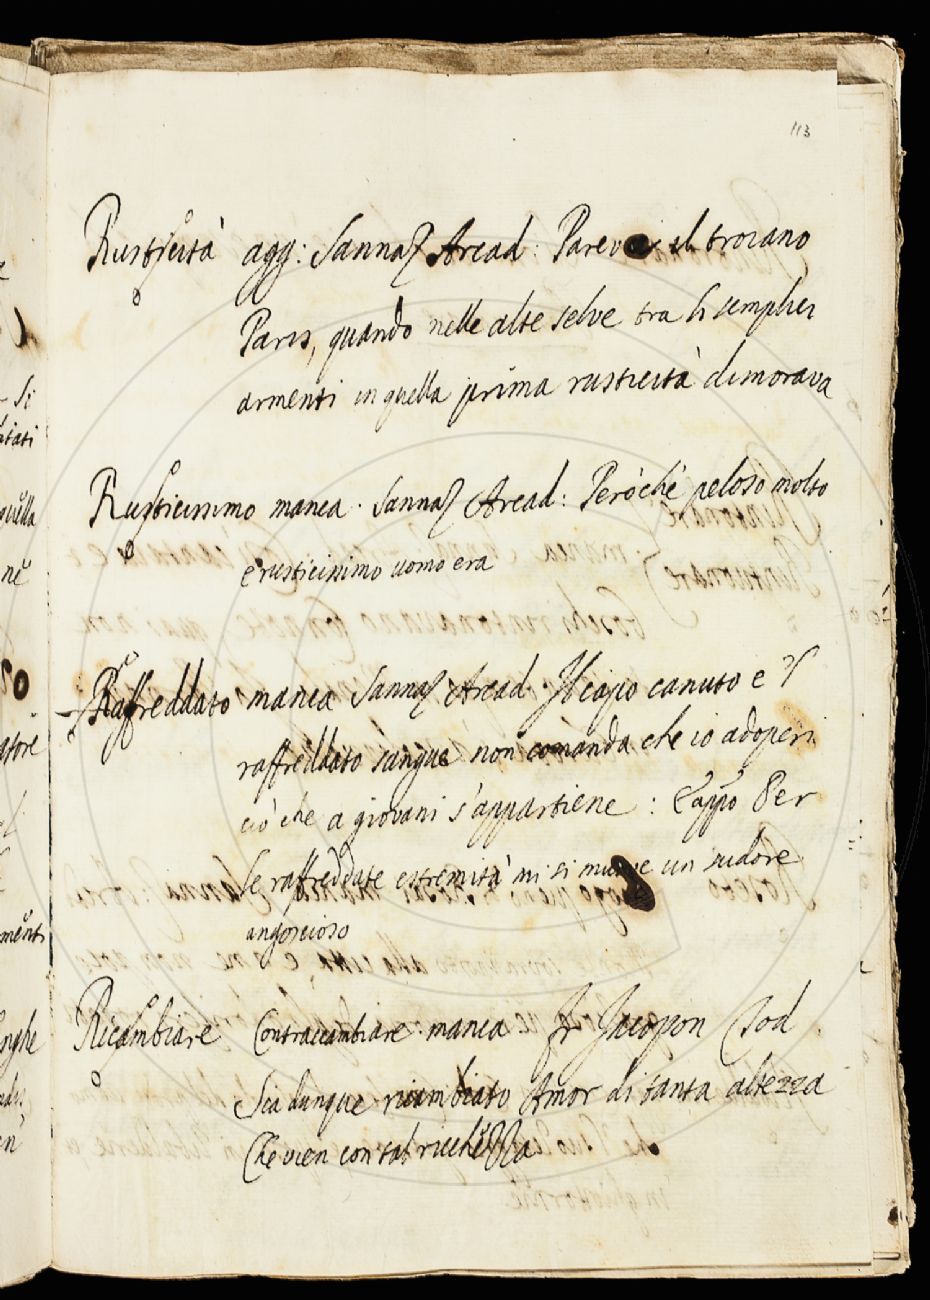 113
Rusticità agg: Sannaz Arcad: Pareva il troiano
Paris, quando nelle alte selve tra li semplici
armenti in quella prima rusticità dimorava
Rusticissimo manca. Sannaz Arcad: Però che peloso molto
e rusticissimo uomo era
Raffreddato manca Sannaz Arcad Il capo canuto e 'l
raffreddato sangue non comanda che io adoperi
ciò che a giovani s'appartiene: Lappo Per
le raffreddate estremità mi si muove un sudore
angoscioso
Ricambiare Contraccambiare manca Fr Jacopon Tod
Sia dunque ricambiato Amor di tanta altezza
Che vien con tal ricchezza